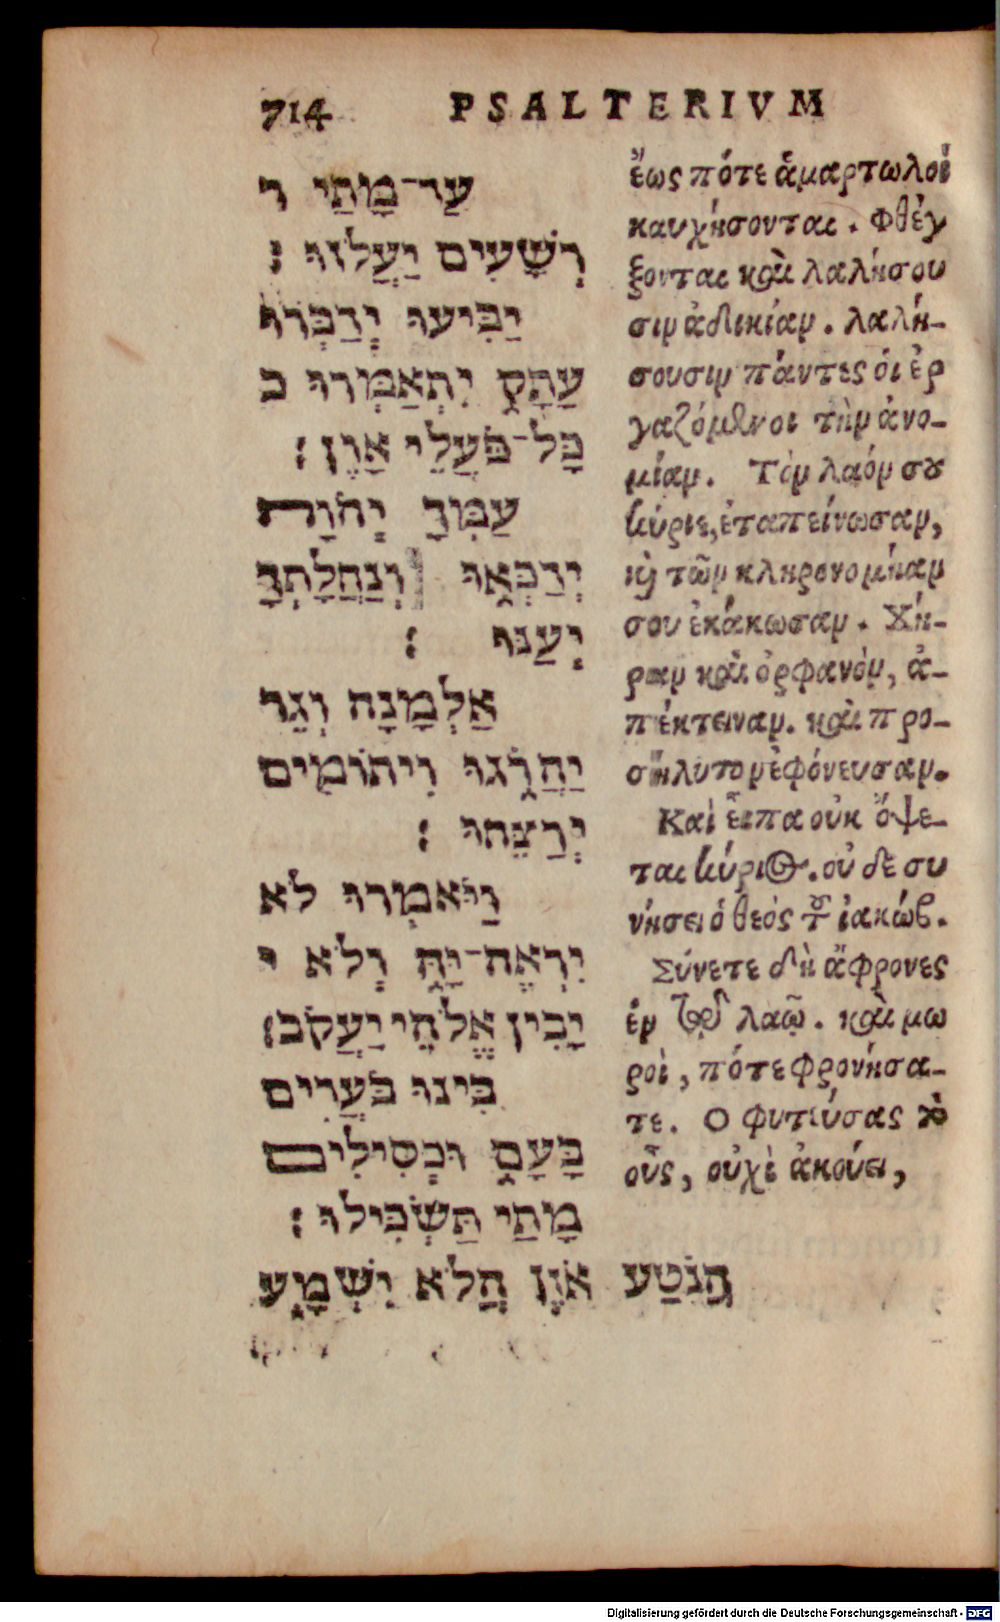 714 PSALTERIVM
עַד־מָתַי ר
רְשָׁעִים יַעֲלֹזוּ׃
יַבִּיעוּ יְדַבְּרוּ
עָתָק יִתְאַמְּרוּ כ
כָּל־פֹּעֲלֵי אָוֶן׃
עַמְּךָ יְהוָה
יְדַכְּאוּ וְנַחֲלָתְךָ
יְעַנּוּ׃
אַלְמָנָה וְגֵר
יַהֲרֹגוּ וִיתוֹמִים
יְרַצֵּחוּ׃
וַיֹּאמְרוּ לֹא
יִרְאֶה־יָּהּ וְלֹא י
יָבִין אֱלֹהֵי יַעֲקֹב׃
בִּינוּ בֹּעֲרִים
בָּעָם וּכְסִילִים
מָתַי תַּשְׂכִּילוּ׃
הֲנֹטַע אֹזֶן הֲלֹא יִשְׁמָע
ἕως πότε ἁμαρτωλοὶ
καυχήσονται. Φθέγ
ξονται καὶ λαλήσου
σιν ἀδικίαν. λαλή-
σουσιν πάντες ὁι ἐρ
γαζόμενοι τὴν ἀνο-
μίαν. Τὸν λαόν σου
κύριε, ἐταπείνωσαν,
καὶ τῶν κληρονομίαν
σου ἐκάκωσαν. Χή-
ραν καὶ ὀρφανὸν, ἀ-
πέκτειναν. καὶ προ-
σήλυτον ἐφόνευσαν.
Καὶ εἶπα οὐκ ὄψε-
ται κύριος. οὐδε συ
νήσει ὁ θεός τοῦ ἰακώβ.
Σύνετε δὴ ἄφρονες
ἐν τῷ λαῷ. καὶ μω
ροὶ, πότε φρονήσα-
τε. Ο φυτεύσας τὸ
οὖς, οὐχὶ ἀκούει,
Digitalisierung gefördert durch die Deutsche Forschungsgemeinschaft - DFG